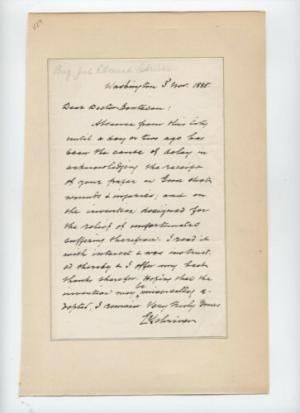 Washington 5 Nov. 1885
Dear Doctor
Absence from this City
until a day or two ago has
been the cause of delay in
acknowledging the receipt
of your paper on Gun shot
wounds & injuries, and on
the invention designed for
the relief of unfortunates
suffering therefrom. I read it
with interest & was instruct-
ed thereby & I offer my best
thanks therefor. Hoping that the
invention may be a-
dopted, I remain Very Truly Yours